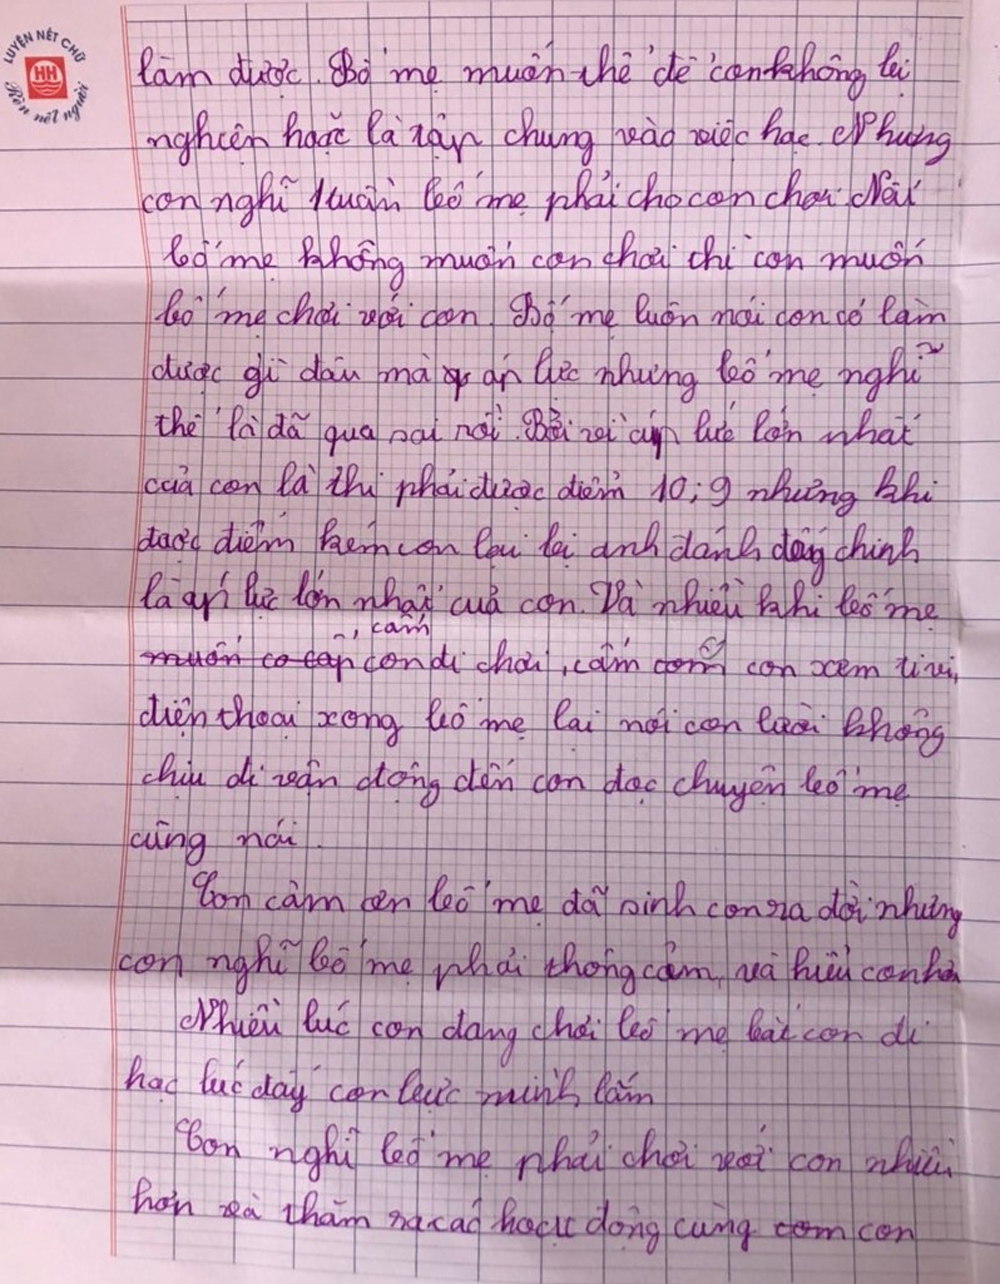 LUYỆN NÉT CHỮ
HH
Rèn nết người
làm được. Bố mẹ muốn thế để con không bị
nghiện hoặc là tập chung vào việc học. Nhưng
con nghĩ 1 tuần bố mẹ phải cho con chơi. Nếu
bố mẹ không muốn con chơi thì con muốn
bố mẹ chơi với con. Bố mẹ luôn nói con có làm
được gì đâu mà áp lực nhưng bố mẹ nghĩ
thế là đã qua sai rồi. Bởi vì áp lực lớn nhất
của con là thi phải được điểm 10; 9 nhưng khi
được điểm kém con lại bị đánh đấy chính
là áp lực lớn nhất của con. Và nhiều khi bố mẹ
, cấm
muốn co cấp con đi chơi, cấm con xem ti vi,
điện thoại xong bố mẹ lại nói con lười không
chịu đi vận động đến con đọc chuyện bố mẹ
cũng nói.
Con cảm ơn bố mẹ đã sinh con ra đời nhưng
con nghĩ bố mẹ phải thông cảm và hiểu con hơn
Nhiều lúc con đang chơi bố mẹ bắt con đi
học lúc đấy con bực mình lắm
Con nghĩ bố mẹ phải chơi với con nhiều
hơn và thăm ra các hoạt động cùng com con